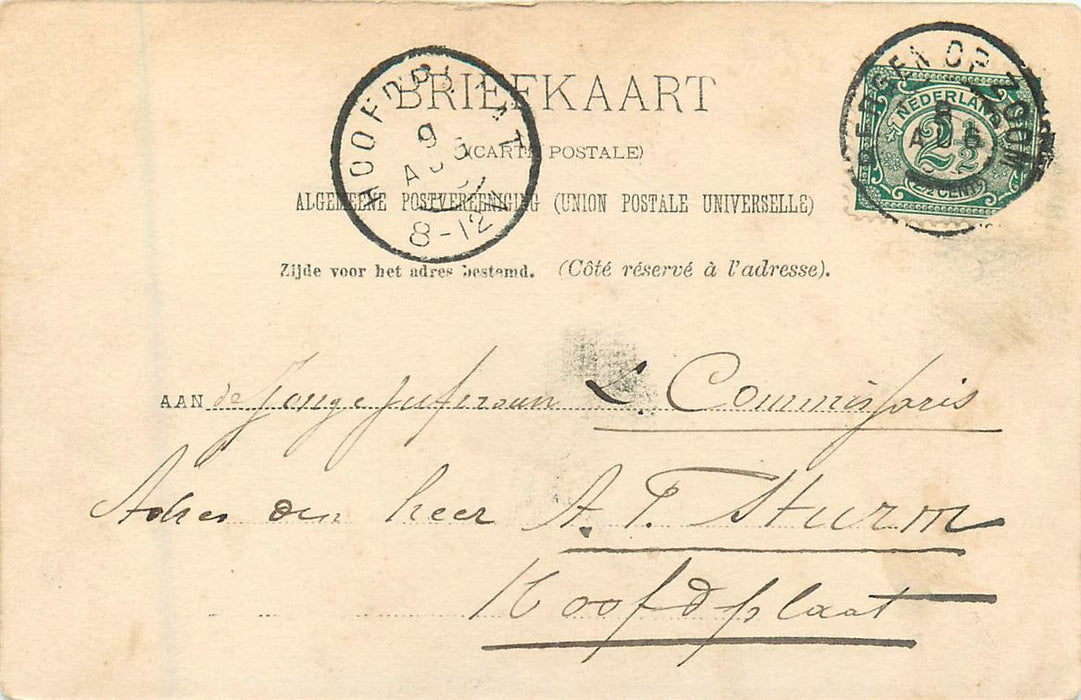 BRIEFKAART
(CARTE POSTALE)
ALGEMEENE POSTVEREENIGING (UNION POSTALE UNIVERSELLE)
Zijde voor het adres bestemd. (Côté réservé à l'adresse).
HOOFDPLAAT
9
AUG
01
8-12
BERGEN OP ZOOM
8
AUG
NEDERLAND
2½
2½ CENT
AAN de Jonge Jufvrouw L. Commissaris
Adres den heer A. P. Sturm
Hoofdplaat